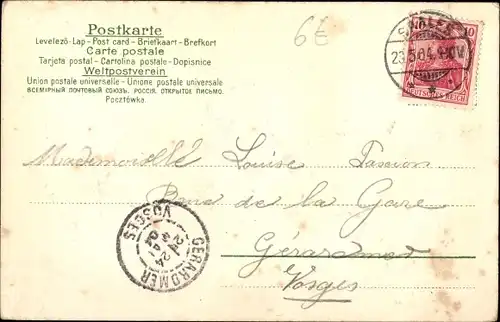 Postkarte
Levelező-Lap - Post card - Briefkaart - Brefkort
Carte postale
Tarjeta postal - Cartolina postale - Dopisnice
Weltpostverein
Union postale universelle - Unione postale universale
ВСЕМІРНЫЙ ПОЧТОВЫЙ СОЮЗЪ. РОССІЯ. ОТКРЫТОЕ ПИСЬМО.
Pocztówka.
6E
10
23.5.04.
DEUTSCHES REICH
Mademoiselle Louise
de la Gare
Gérardmer
Vosges
GERARDMER
24
MAI
04
VOSGES